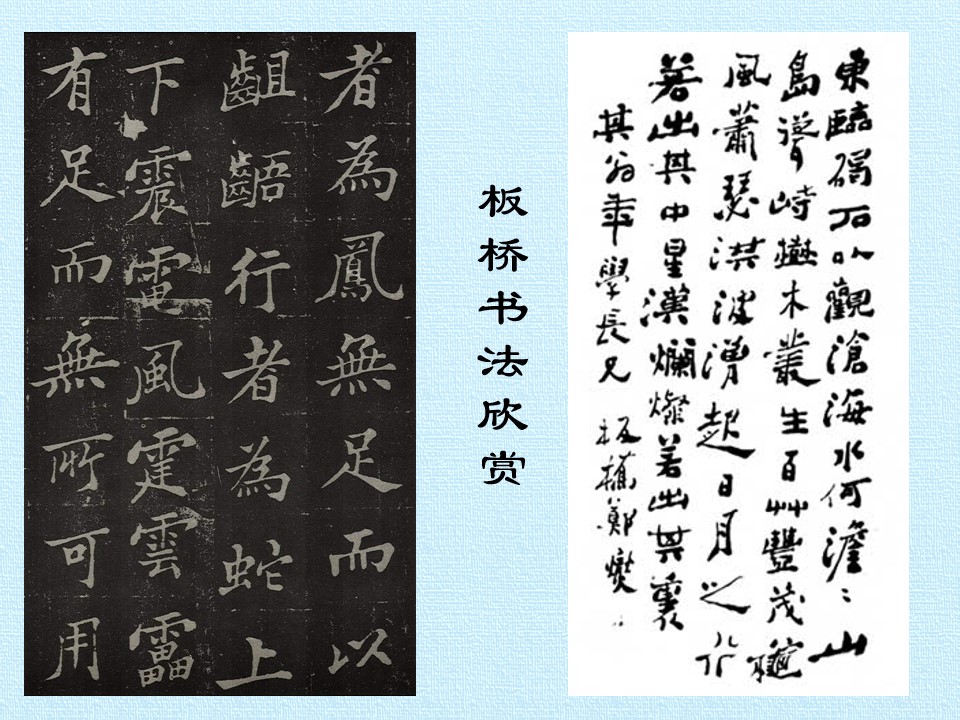 者為鳳無足而以
齟齬行者為蛇上
下震電風霆雲靁
有足而無所可用
板桥书法欣赏
東臨碣石以觀滄海水何澹〻山
島聳峙樹木叢生百艸豐茂龝
風蕭瑟洪波湧起日月之行
若出其中星漢爛燦若出其裏
其翁年學長兄 板橋鄭燮